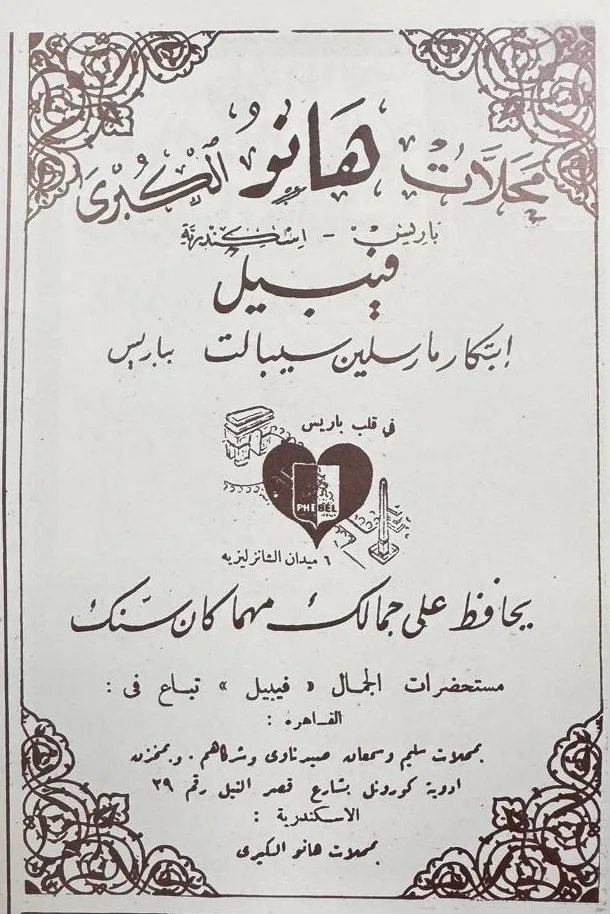 محلات هانو الكبرى
باريس - اسكندرية
فيبيل
إبتكار مارسلين سيبالت بباريس
في قلب باريس
PHEBEL
٦ ميدان الشانزليزيه
يحافظ على جمالك مهما كان سنك
مستحضرات الجمال « فيبيل » تباع فى :
القاهره :
بمحلات سليم وسمعان صيدناوى وشركاهم . وبمخزن
ادوية كورونل بشارع قصر النيل رقم ٣٩
الاسكندرية :
بمحلات هانو الكبرى